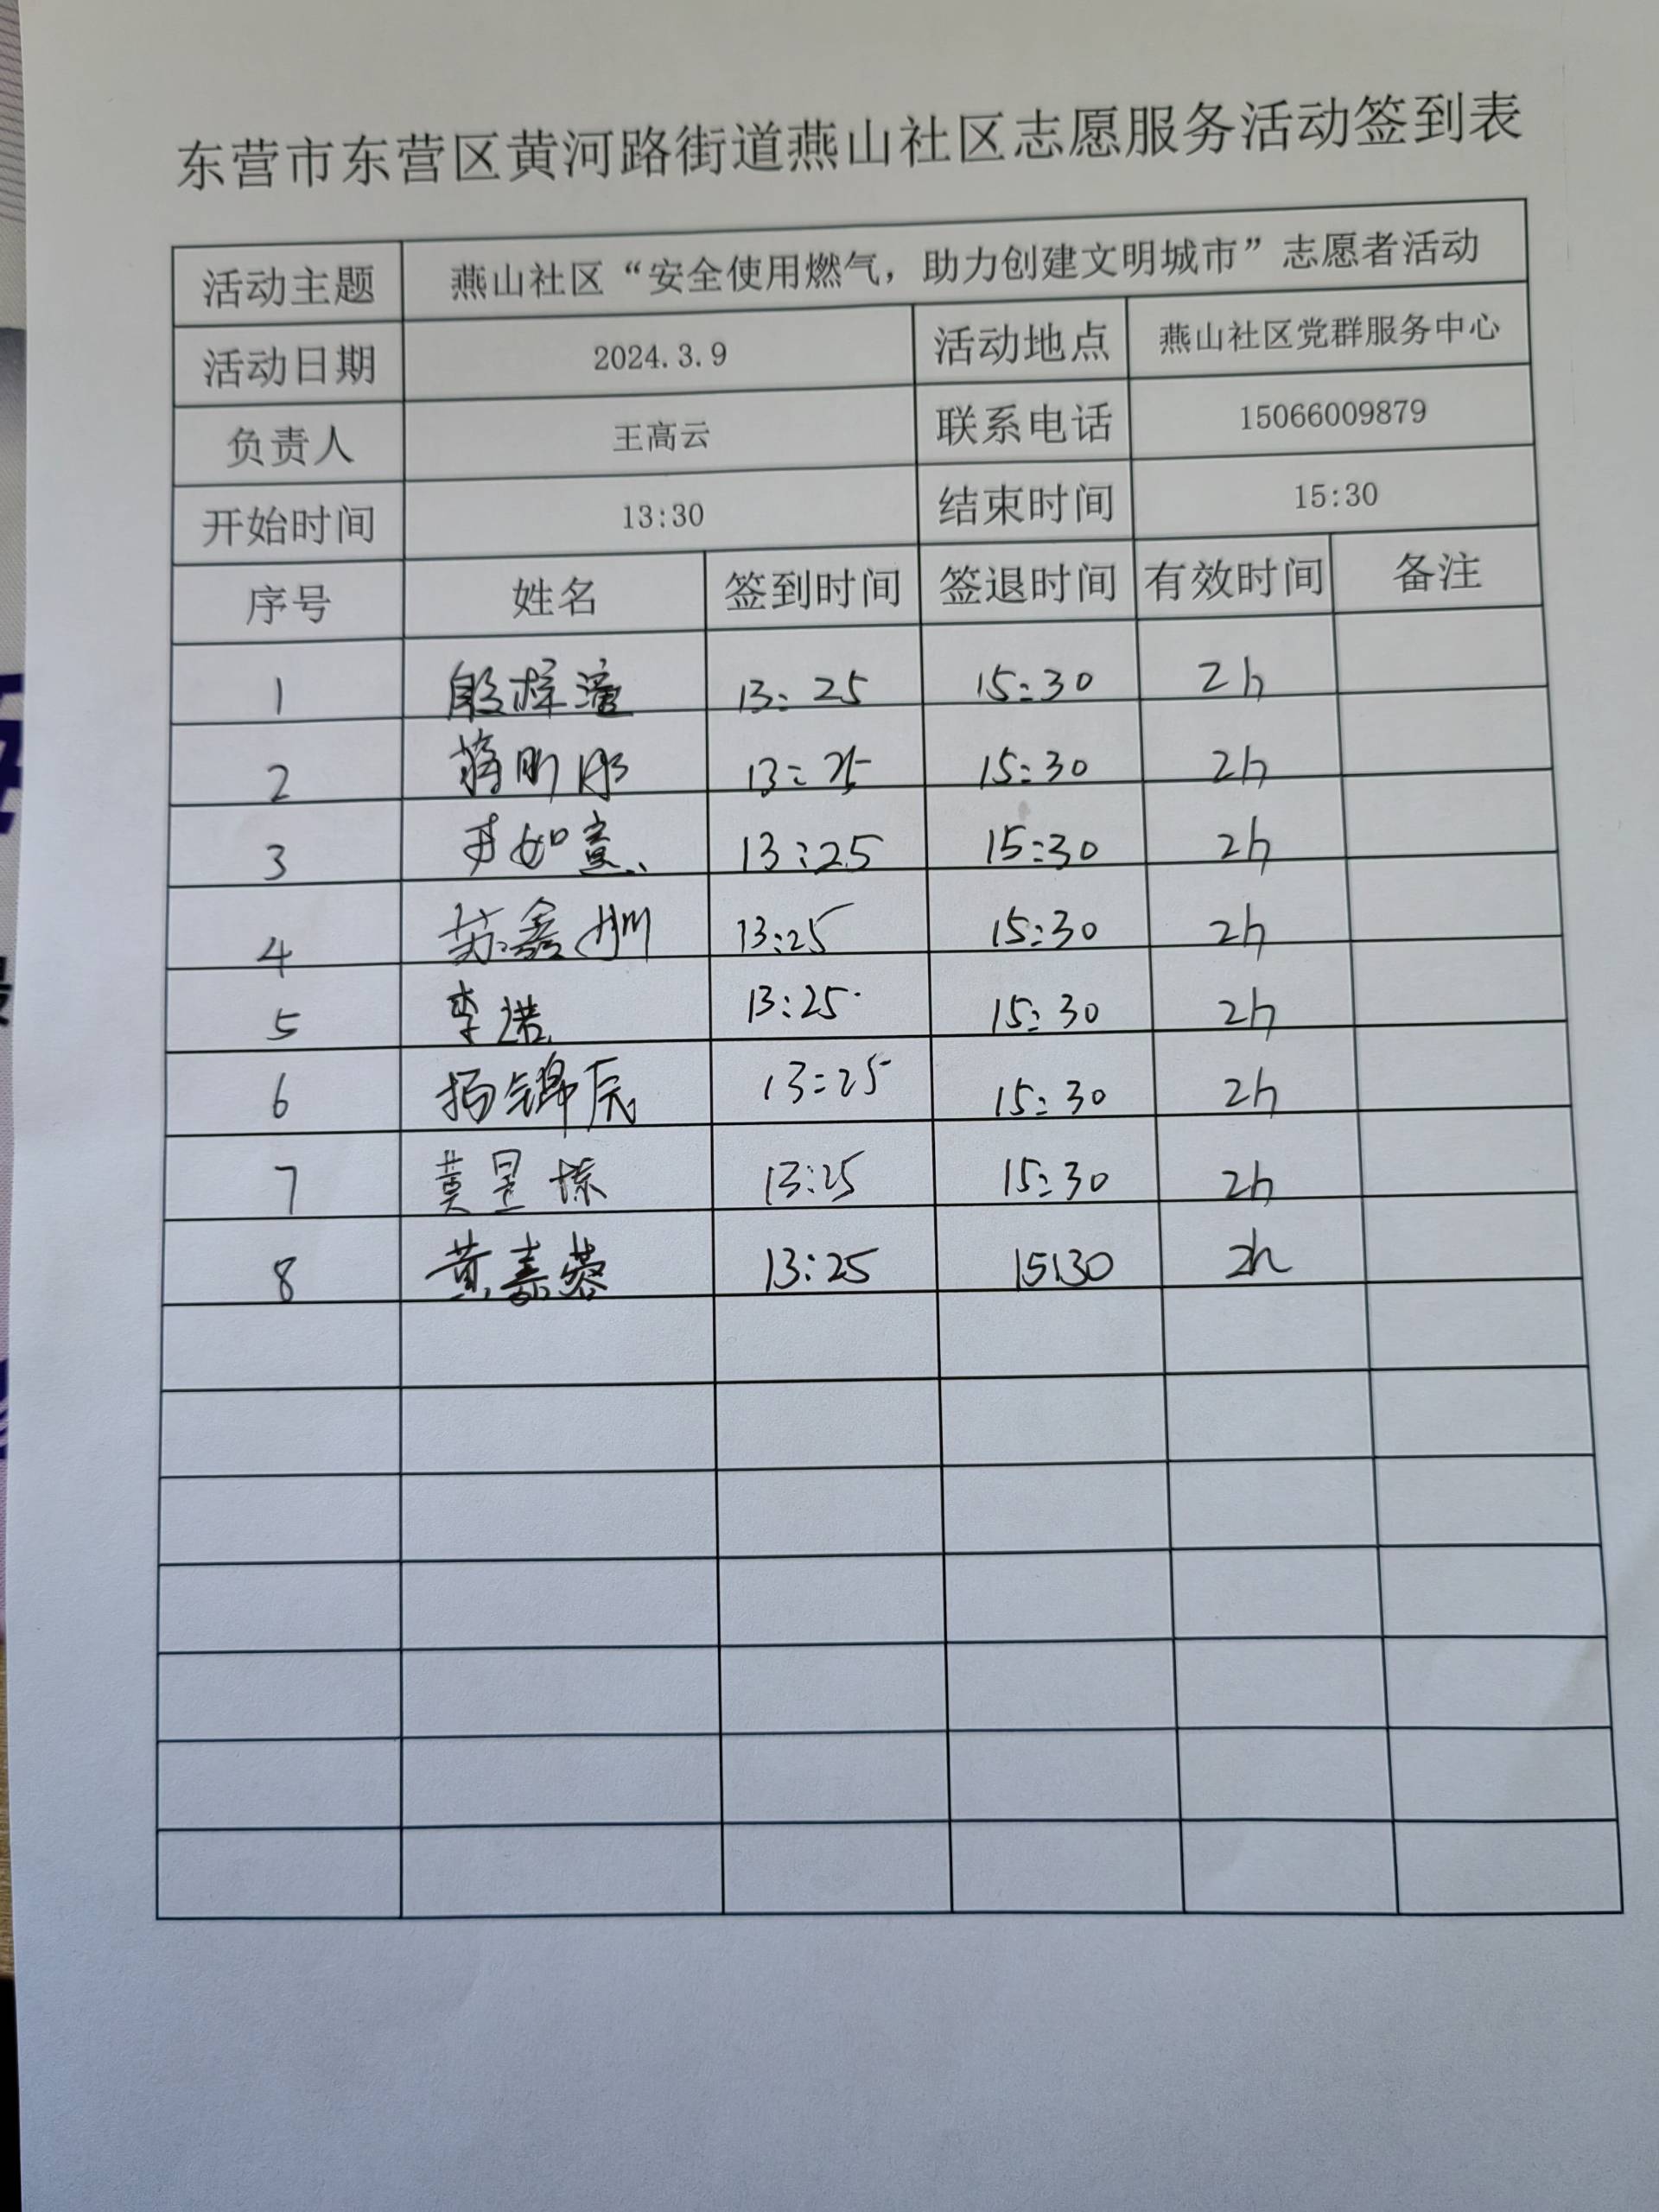 东营市东营区黄河路街道燕山社区志愿服务活动签到表
活动主题 燕山社区“安全使用燃气，助力创建文明城市”志愿者活动
活动日期 2024.3.9 活动地点 燕山社区党群服务中心
负责人 王高云 联系电话 15066009879
开始时间 13:30 结束时间 15:30
序号 姓名 签到时间 签退时间 有效时间 备注
1 13:25 15:30 2h
2 13:25 15:30 2h
3 如意 13:25 15:30 2h
4 苏鑫 13:25 15:30 2h
5 李诺 13:25 15:30 2h
6 杨锦辰 13:25 15:30 2h
7 莫昱 13:25 15:30 2h
8 黄嘉蓉 13:25 15:30 2h